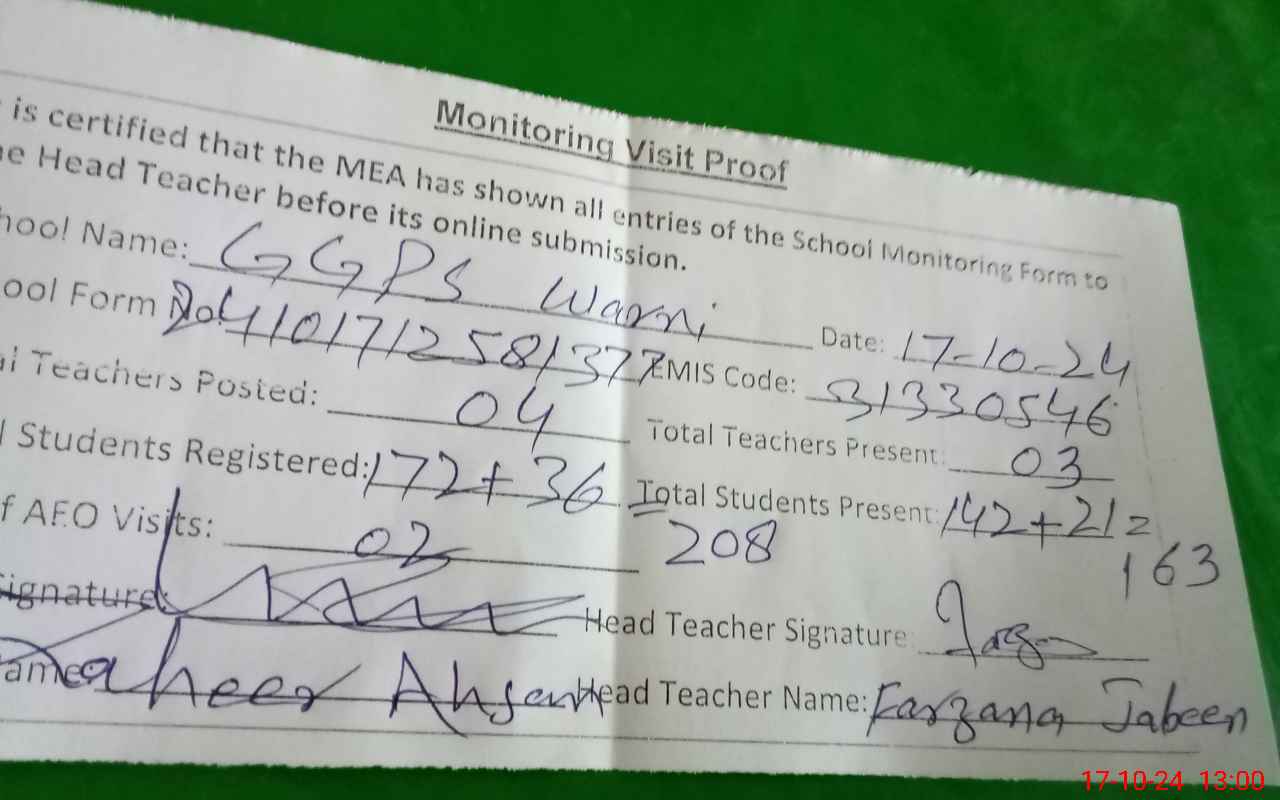 Monitoring Visit Proof
is certified that the MEA has shown all entries of the School Monitoring Form to
Head Teacher before its online submission.
Name: GGPS Warni Date: 17-10-24
Form No: 4101712581377 EMIS Code: 31330546
Teachers Posted: 04 Total Teachers Present: 03
Students Registered: 172+36 = 208 Total Students Present: 142+21= 163
AEO Visits: 02
Signature: Head Teacher Signature:
Ahsan Head Teacher Name: Farzana Jabeen
17-10-24 13:00